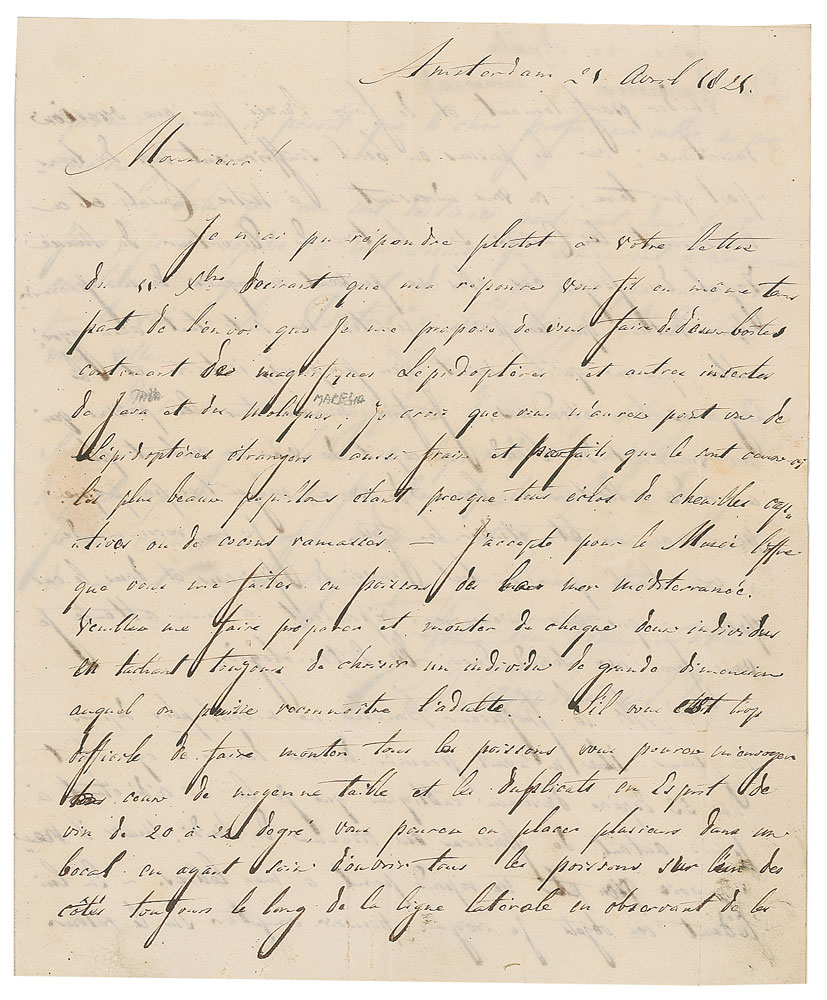 Amsterdam 21 Avril 1821.
Monsieur!
Je n'ai pu répondre plutot à votre lettre
du 11 Xbre desirant que ma réponse vous fit en même tems
part de l'envoi que je me propose de vous faire de deux boites
contenant de magnifiques Lépidoptères et autres insectes
JAVA MAKESIO
de Java et des Moluques; je crois que vous n'aurez point vu de
Lépidoptères étrangers aussi frais et parfaits que le sont ceux ci
les plus beaux papillons étant presque tous éclos de chenilles cap-
tives ou de cocons ramassés — J'accepte pour le Musée l'offre
que vous me faites en poissons de la mer méditerranée.
Veuillez me faire préparer et monter de chaque deux individus
en tachant toujours de choisir un individu de grande dimension
auquel on puisse reconnoitre l'adulte. S'il vous est trop
difficile de faire monter tous les poissons vous pouvez m'envoyer
ceux de moyenne taille et les duplicats en Esprit de
vin de 20 à 22 degré, vous pouvez en placer plusieurs dans un
bocal en ayant soin d'ouvrir tous les poissons sur l'un des
côtés toujours le long de la ligne latérale en observant de les